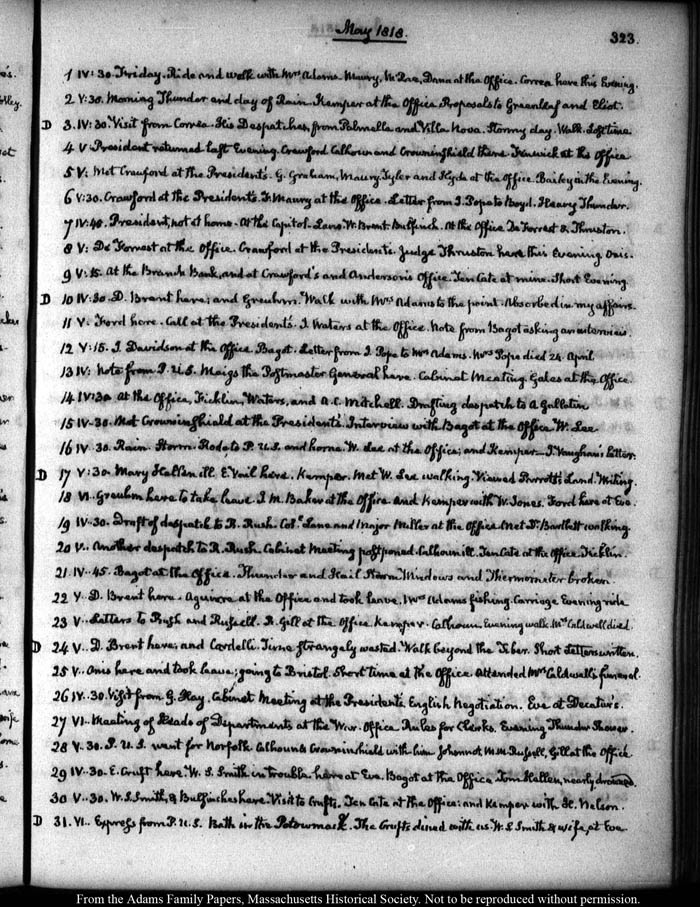 May 1818.
323.
1 IV:30. Friday. Ride and walk with Mrs Adams. Maury, McRae, Dana at the Office. Correa here this Evening.
2 V:30. Morning Thunder and day of Rain. Kemper at the Office. Proposals to Greenleaf and Eliot.
D 3. IV:30. Visit from Correa. His Despatches, from Palmella and Villa Nova. Stormy day. Walk. Lost time
4 V President returned last Evening. Crawford Calhoun and Crowninshield there. Fenwick at the Office
5 V. Met Crawford at the President's. G. Graham, Maury, Tyler and Hyde at the Office. Bailey in the Evening.
6 V:30. Crawford at the President's. Maury at the Office. Letter from J. Pope to Boyd. Heavy Thunder.
7 IV:40. President, not at home. At the Capitol. Lane W. Brent. Bulfinch. At the Office De Forrest & Thruston.
8 V: De Forrest at the Office. Crawford at the President's. Judge Thruston here this Evening Onis.
9 V:15. At the Branch Bank, and at Crawford's and Anderson's Office. Ten Cate at mine. Short Evening.
D 10 IV:30. D. Brent here; and Greuhm. Walk with Mrs Adams to the point. Absorbed in my affairs.
11 V. Ford here. Call at the President's. J. Waters at the Office. Note from Bagot asking an interview.
12 V:15. J. Davidson at the Office. Bagot. Letter from J. Pope to Mrs Adams. Mrs Pope died 24. April
13 IV: Note from P.U.S. Meigs the Postmaster General here. Cabinet Meeting. Gales at the Office.
14 IV:30 At the Office, Ficklin, Waters, and A.C. Mitchell. Drafting despatch to A Gallatin
15 IV.30. Met Crowninshield at the President's. Interview with Bagot at the Office. W. Lee
16 IV.30. Rain. Storm. Rode to P.U.S. and home. W. Lee at the Office; and Kemper. J. Vaughan's letter.
D 17 V:30. Mary Hellen ill. E. Vail here. Kemper. Met W. Lee walking. Viewed Perrott's Land. Writing.
18 VI. Greuhm here to take leave. J. M. Baker at the Office and Kemper with W. Jones. Ford here at Eve.
19 IV-30. Draft of despatch to R. Rush. Col. Lane and Major Miller at the Office. Met Dr Bartlett walking.
20 V.. Another despatch to R. Rush. Cabinet Meeting postponed. Calhoun ill. Ten Cate at the Office. Ficklin.
21 IV..45. Bagot at the Office. Thunder and Hail Storm. Windows and Thermometer broken.
22 V.. D. Brent here. Aguirre at the Office and took leave. Mrs Adams fishing. Carriage Evening ride
23 V.. Letters to Rush and Russell. R. Gill at the Office. Kemper. Calhoun. Evening walk. Mrs Caldwell died.
D 24 V.. D. Brent here; and Cardelli. Time strangely wasted. Walk beyond the Tiber. Short letters written.
25 V.. Onis here and took leave; going to Bristol. Short time at the Office. Attended Mrs Caldwell's funeral.
26 IV..30. Visit from G. Hay. Cabinet Meeting at the President's. English Negotiation. Eve at Decatur's.
27 VI.. Meeting of Heads of Departments at the War Office. Rules for Clerks. Evening Thunder Shower.
28 V..30. P.U.S. went for Norfolk Calhoun & Crowninshield with him. Johonnot, M.M. Russell, Gill at the Office
29 IV..30. E. Cruft here. W. S. Smith in trouble. here at Eve. Bagot at the Office. Tom Hellen, nearly drowned.
30 V..30. W. S. Smith, & Bulfinches here. Visit to Crufts. Ten Cate at the Office: and Kemper with H. Nelson.
D 31. VI.. Express from P.U.S. Bath in the Potowmack. The Crufts dined with us. W. S Smith & wife, at Eve
From the Adams Family Papers, Massachusetts Historical Society. Not to be reproduced without permission.